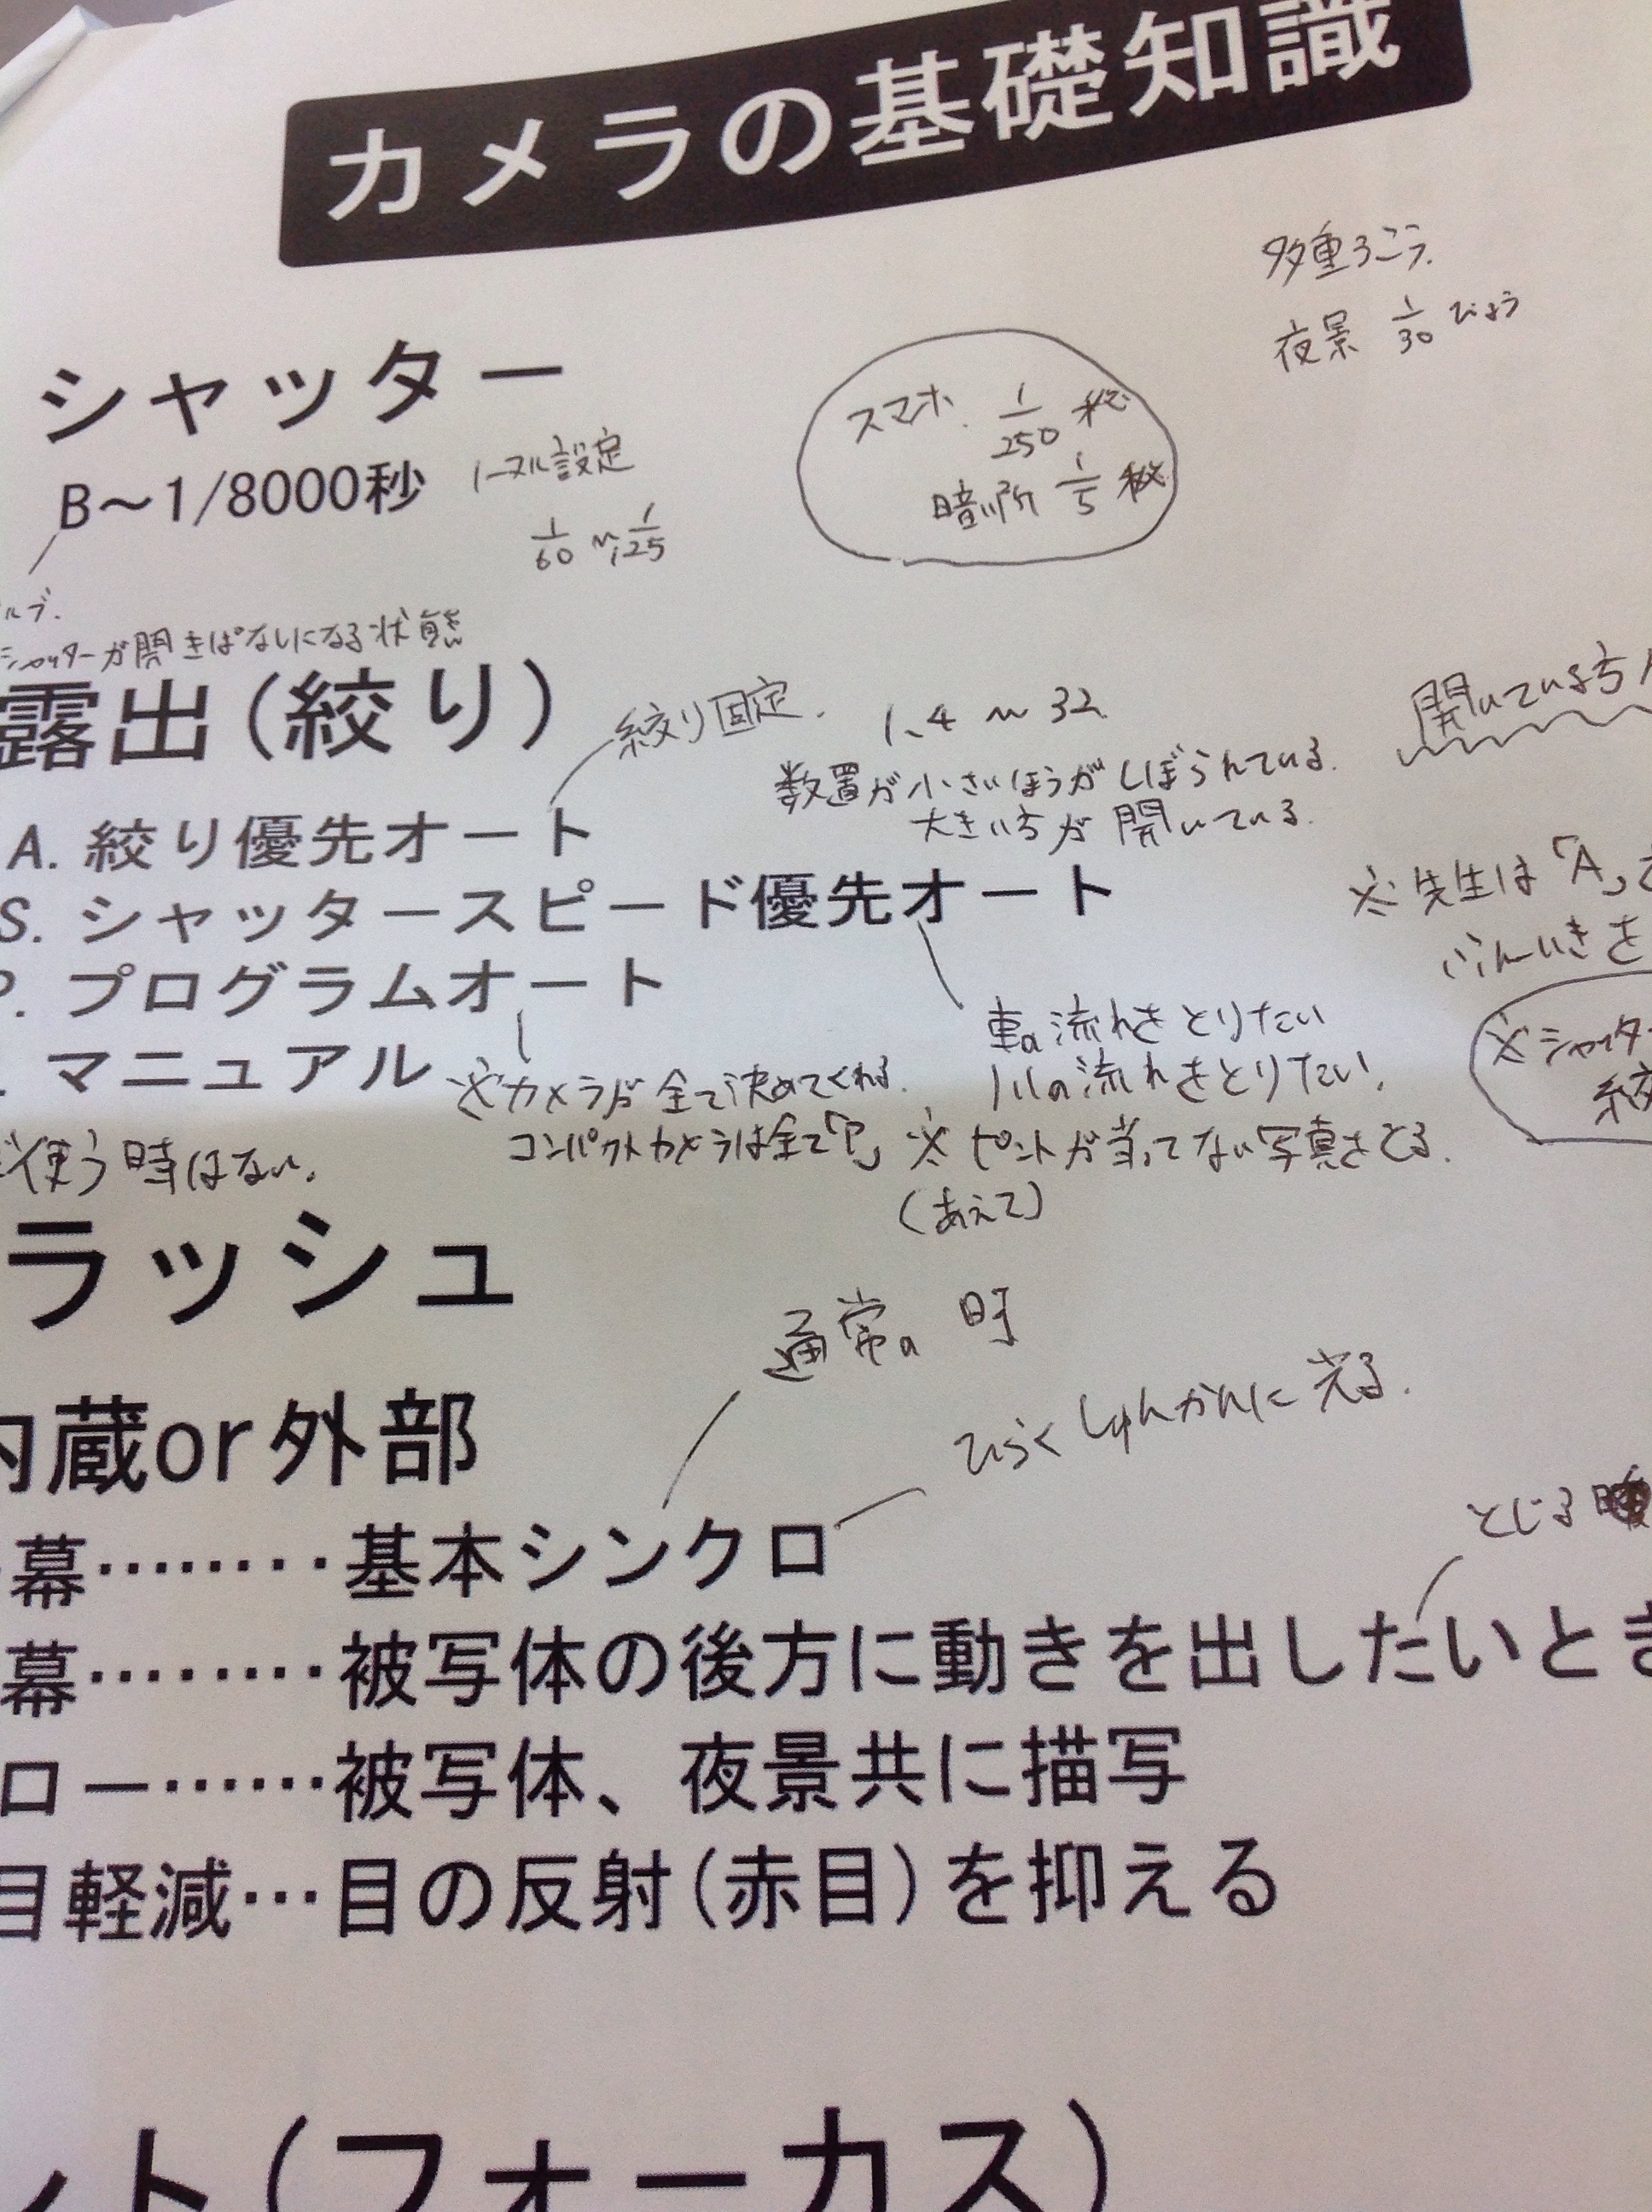 カメラの基礎知識
多重ろこう.
夜景 1/30 びょう
シャッター
スマホ. 1/250 秒
暗い所 1/5 秒
B〜1/8000秒
ノーマル設定
1/60 〜 1/125
ルブ.
シャッターが開きぱなしになる状態
露出(絞り)
絞り固定.
1.4 〜 32
開いているほうが
数置が小さいほうがしぼられている.
大きい方が開いている.
A. 絞り優先オート
※先生は「A」
S. シャッタースピード優先オート
ふんいきを
P. プログラムオート
車の流れをとりたい
川の流れをとりたい.
※シャッター
絞
. マニュアル
※カメラが全て決めてくれる.
コンパクトカメラは全て「P」
※ピントが当ってない写真をとる.
(あえて)
使う時はない.
ラッシュ
通常の時
内蔵or外部
ひらくしゅんかんに光る.
とじる
幕………基本シンクロ
幕………被写体の後方に動きを出したいとき
ロー……被写体、夜景共に描写
目軽減…目の反射(赤目)を抑える
ント(フォーカス)